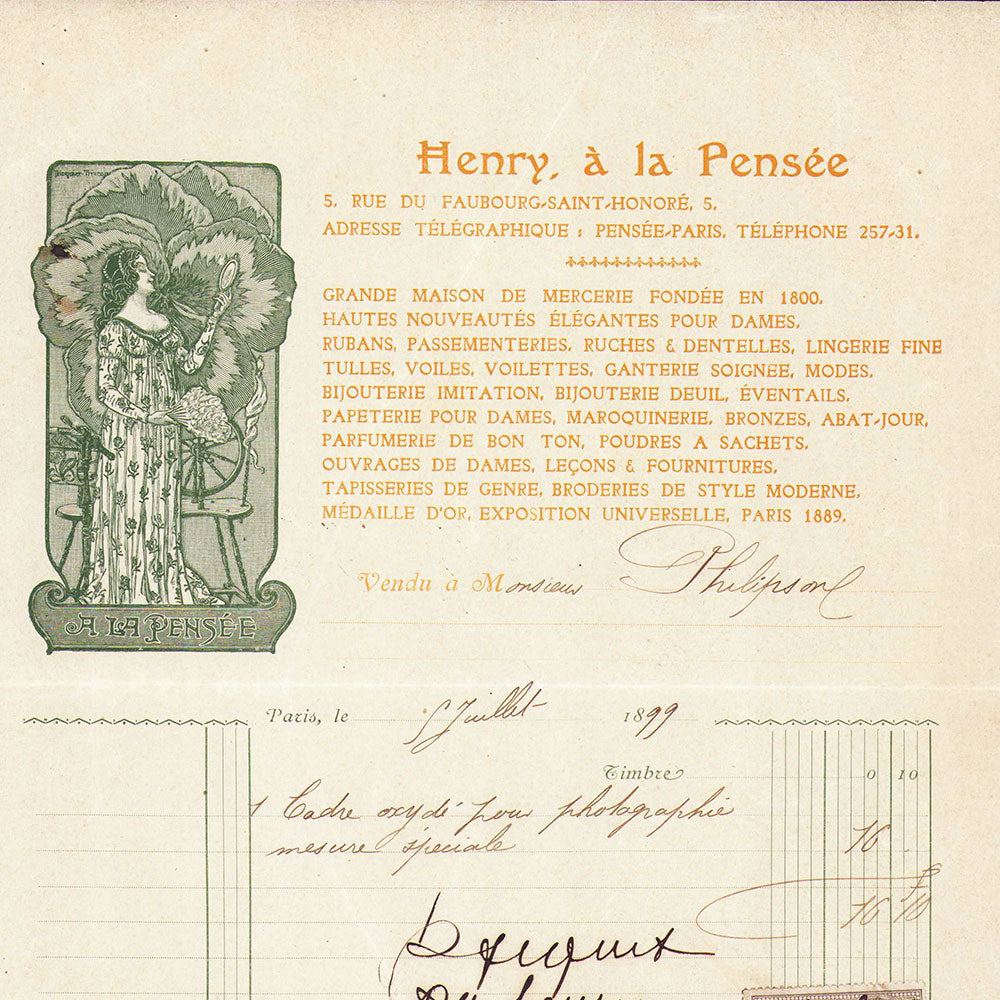 Henry, à la Pensée
5, RUE DU FAUBOURG-SAINT-HONORÉ, 5.
ADRESSE TÉLÉGRAPHIQUE : PENSÉE-PARIS. TÉLÉPHONE 257-31.
GRANDE MAISON DE MERCERIE FONDÉE EN 1800.
HAUTES NOUVEAUTÉS ÉLÉGANTES POUR DAMES,
RUBANS, PASSEMENTERIES, RUCHES & DENTELLES, LINGERIE FINE
TULLES, VOILES, VOILETTES, GANTERIE SOIGNEE, MODES,
BIJOUTERIE IMITATION, BIJOUTERIE DEUIL, ÉVENTAILS,
PAPETERIE POUR DAMES, MAROQUINERIE, BRONZES, ABAT-JOUR,
PARFUMERIE DE BON TON, POUDRES A SACHETS,
OUVRAGES DE DAMES, LEÇONS & FOURNITURES,
TAPISSERIES DE GENRE, BRODERIES DE STYLE MODERNE,
MÉDAILLE D'OR, EXPOSITION UNIVERSELLE, PARIS 1889.
Vendu à Monsieur Philipson
A LA PENSÉE
Paris, le 5 Juillet 1899
Timbre 0 10
1 Cadre oxydé pour photographie
mesure spéciale 16 .
16 10